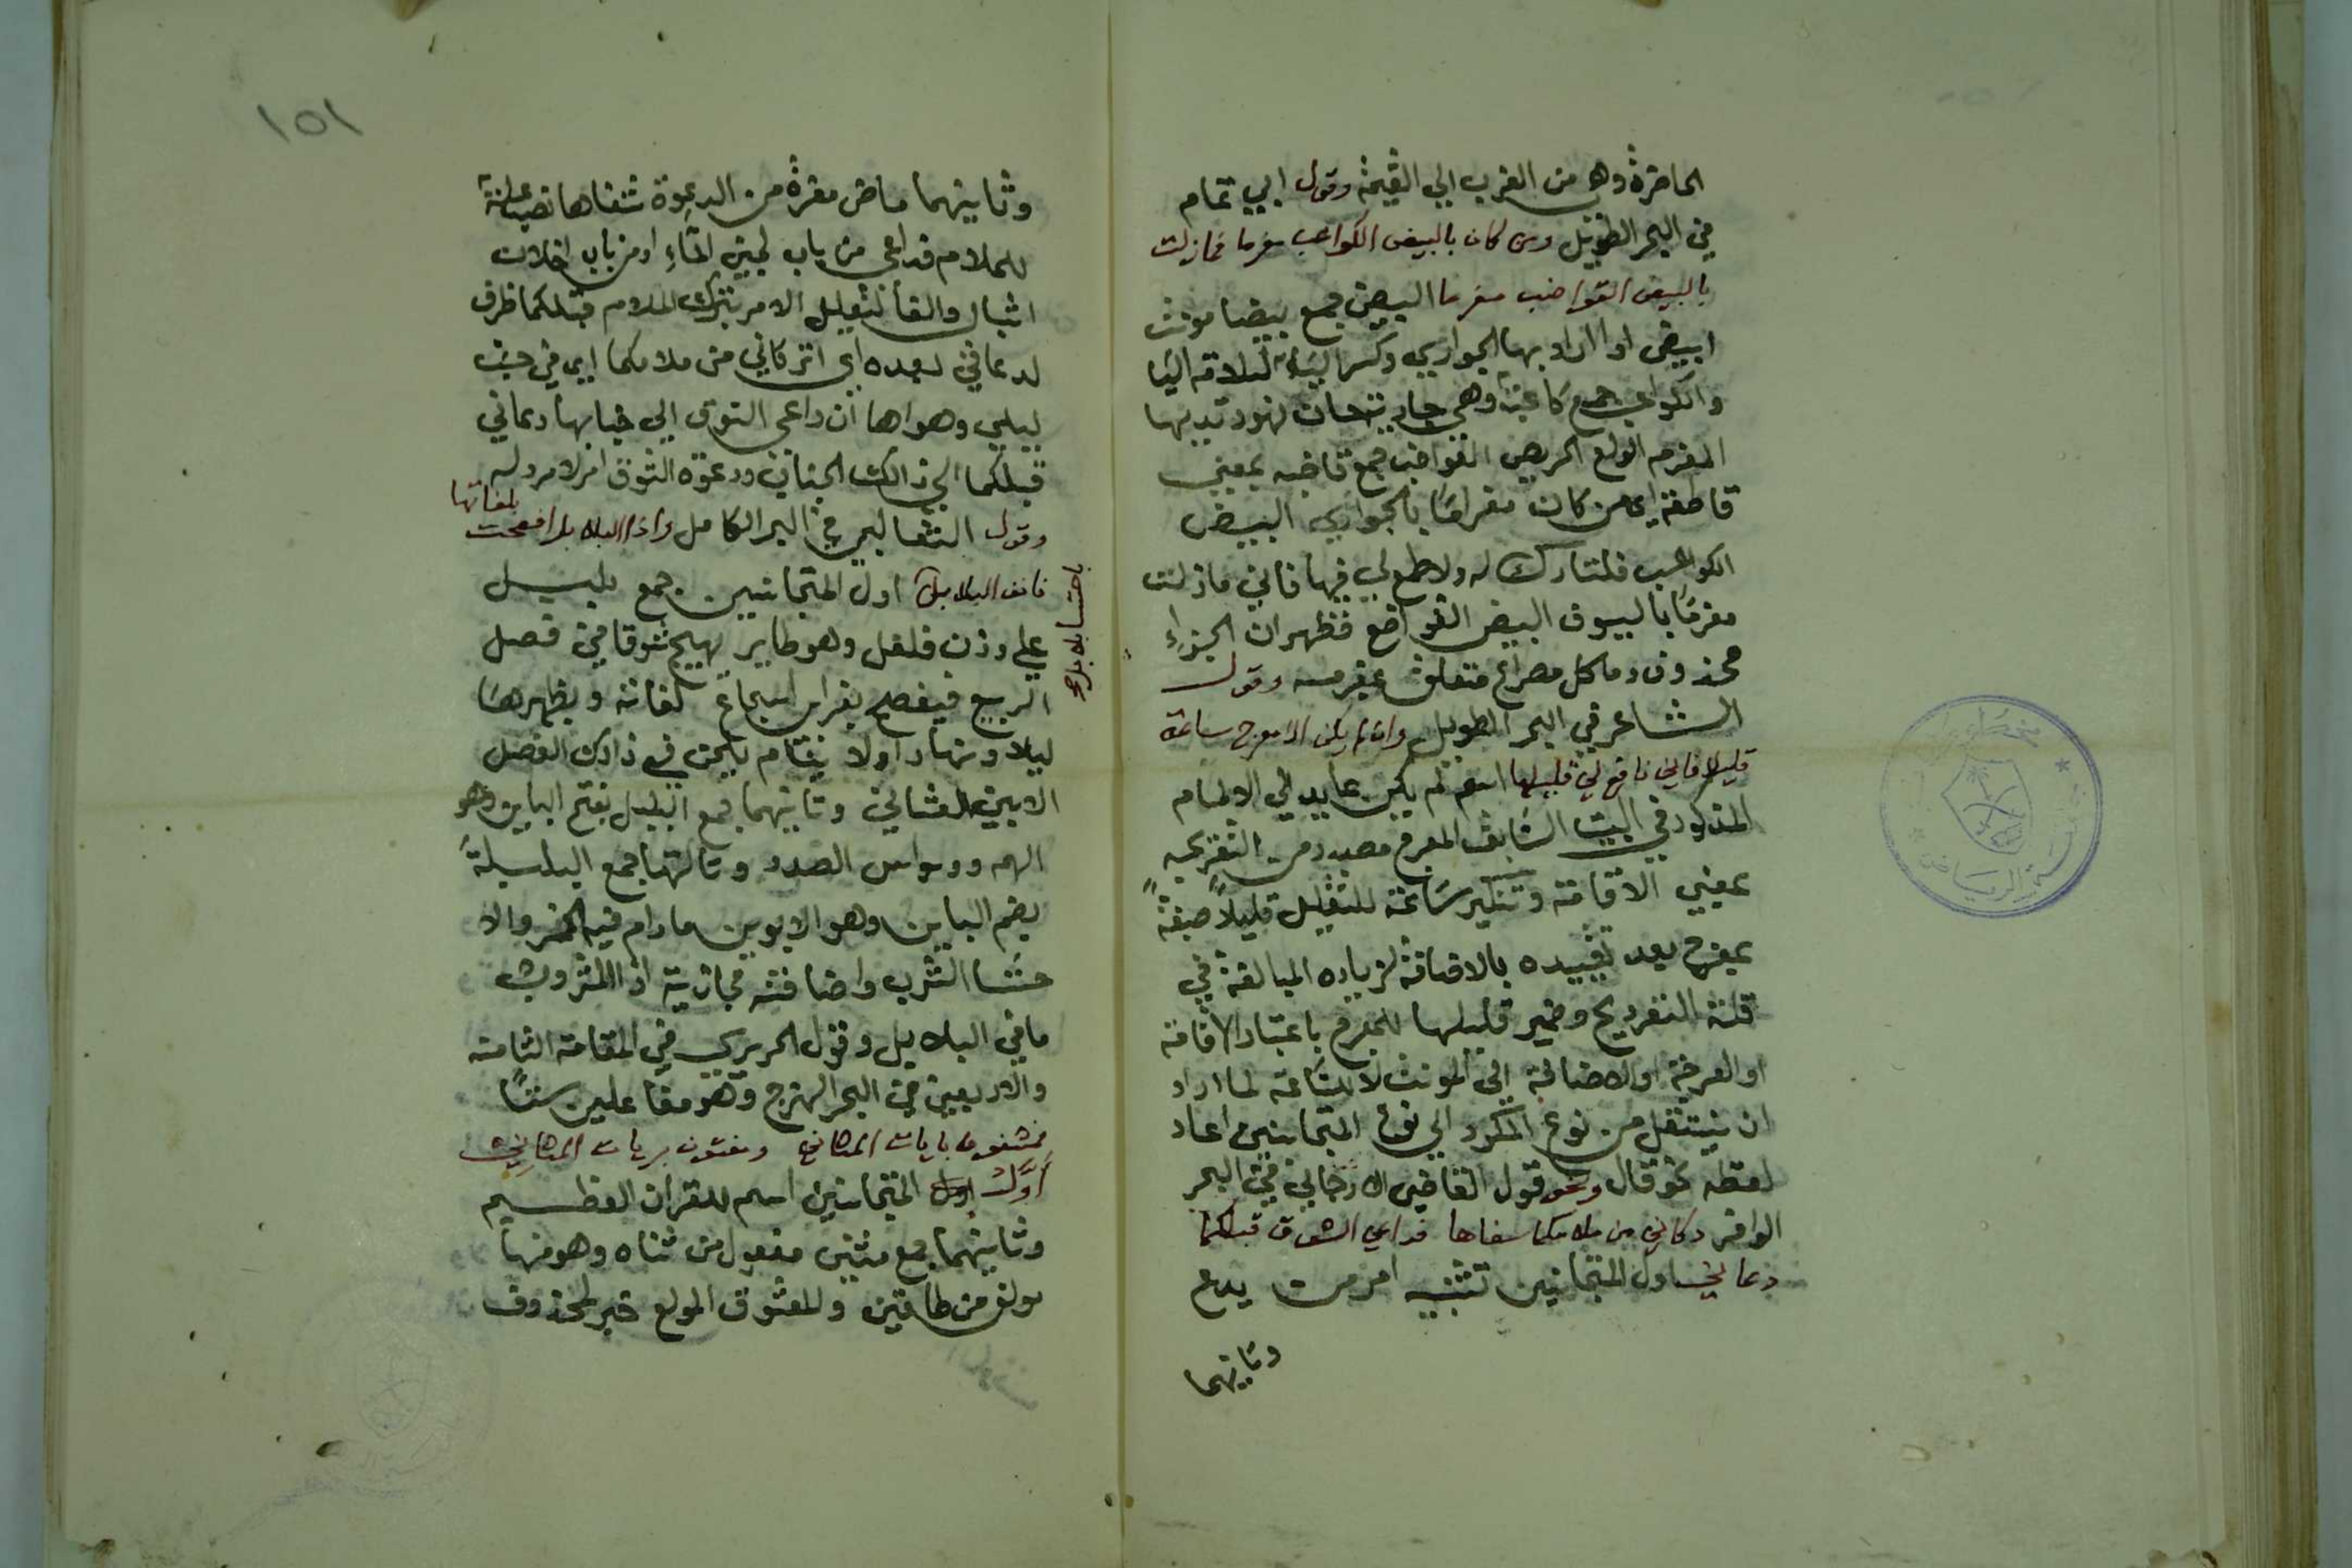 الحاضرة وهي من الغرب الي القيمة وقول ابي تمام
في البحر الطويل ومن كان بالبيض الكواعب مغرما فمازلت
بالبيض القواضب مغرما البيض جمع بيضا مونث
ابيض اوا اراد بها الجواري وكسر الباء لملاقة اليا
والكواعب جمع كاعبة وهي جارية حان نهود ثديها
المغرم الولع الحريص القواضب جمع قاضبه بمعني
قاطعة اي من كان مغرامًا بالجواري البيض
الكواعب فلنتارك له ولا طمع لي فيها فاني مازلت
مغرمًا بالسيوف البيض القواضع فظهر ان الجزاءِ
محذوف وما كل مصراع متعلق بمغرمه وقول
الشاعر في البحر الطويل وان لم يكن الا معرج ساعة
قليلا فاني نافع لي قليلها اسم لم يكن عايد الي الالمام
المذكور في البيت السابق المعرج مصدر من التعريج
بمعني الاقامة وتنكير ساعة للتقليل قليلاً صفةً
بمعرج بعد تقييده بالاضافة لزياده المبالغة في
قلة التعريج وضمير قليلها للمعرج باعتبار الاقامة
او العرجة اولاضافة الي المونث لا للساعة لما اراد
ان ينتقل من نوع المكرر الي نوع المتجانين اعاد
لفظه نحو قال ونحو قول القاضي الارجاني في البحر
الوافر دعاني من ملامكما سفاها فداعي الشوق قبلكما
دعاني اول المتجانين تثنيه امر من يدع
وثانيهما
١٥١
وثانيهما ماض مفرد من الدعوة شفاها نصب علة
للملام فداعي من باب لجين الماءِ او من باب اخلاق
اثبال والفا لتعليل الامر بترك الملام قبلكما ظرف
لدعاني بعده اي اتركاني من ملامكما اي في حب
ليلي وهواها ان داعي الشوق الي خبابها دعاني
قبلكما الي ذالك الجناب ودعوة الشوق امر لا مرد له
وقول الثعالبي في البحر الكامل واذا البلابل افصحت بلغاتها
فانف البلابل باحتسا بلابل اول المتجانسين جمع بلبل
علي وزن فلفل وهو طاير يهيج شوقا في فصل
الربيع فيفصح بغراب اسجاع لغاته ويظهرها
ليلا ونهارا ولا ينام بلحن في ذالك الفصل
الا بين الشاني وثانيهما جمع البلبل بفتح الباين وهو
الهم ووسواس الصدر وثالثها جمع البلبلة
بضم الباين وهو الابوين مادام فيه الخمر والا
حتسا الشرب واضافته مجازية اذ المشروب
ما في البلابل وقول الحريري في المقامة الثامنة
والاربعين في البحر الهزج وهو مفاعلين ستا
فمشغوف بايات المثاني ومفتون برنات المثاني
اول المتجانين اسم للقران العظيم
وثانيهما جمع مثني مفعول من ثناه وهو منها
مولف من طاقتين والمعشوق المولع خبر لمحذوف